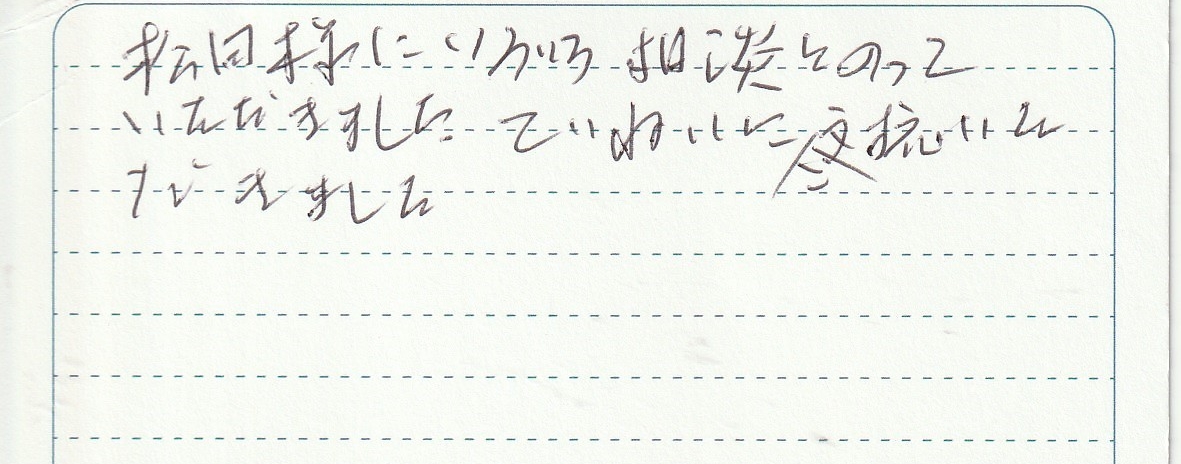 松田様にいろいろ相談とのって
いただきました ていねいに 応対いた
だきました